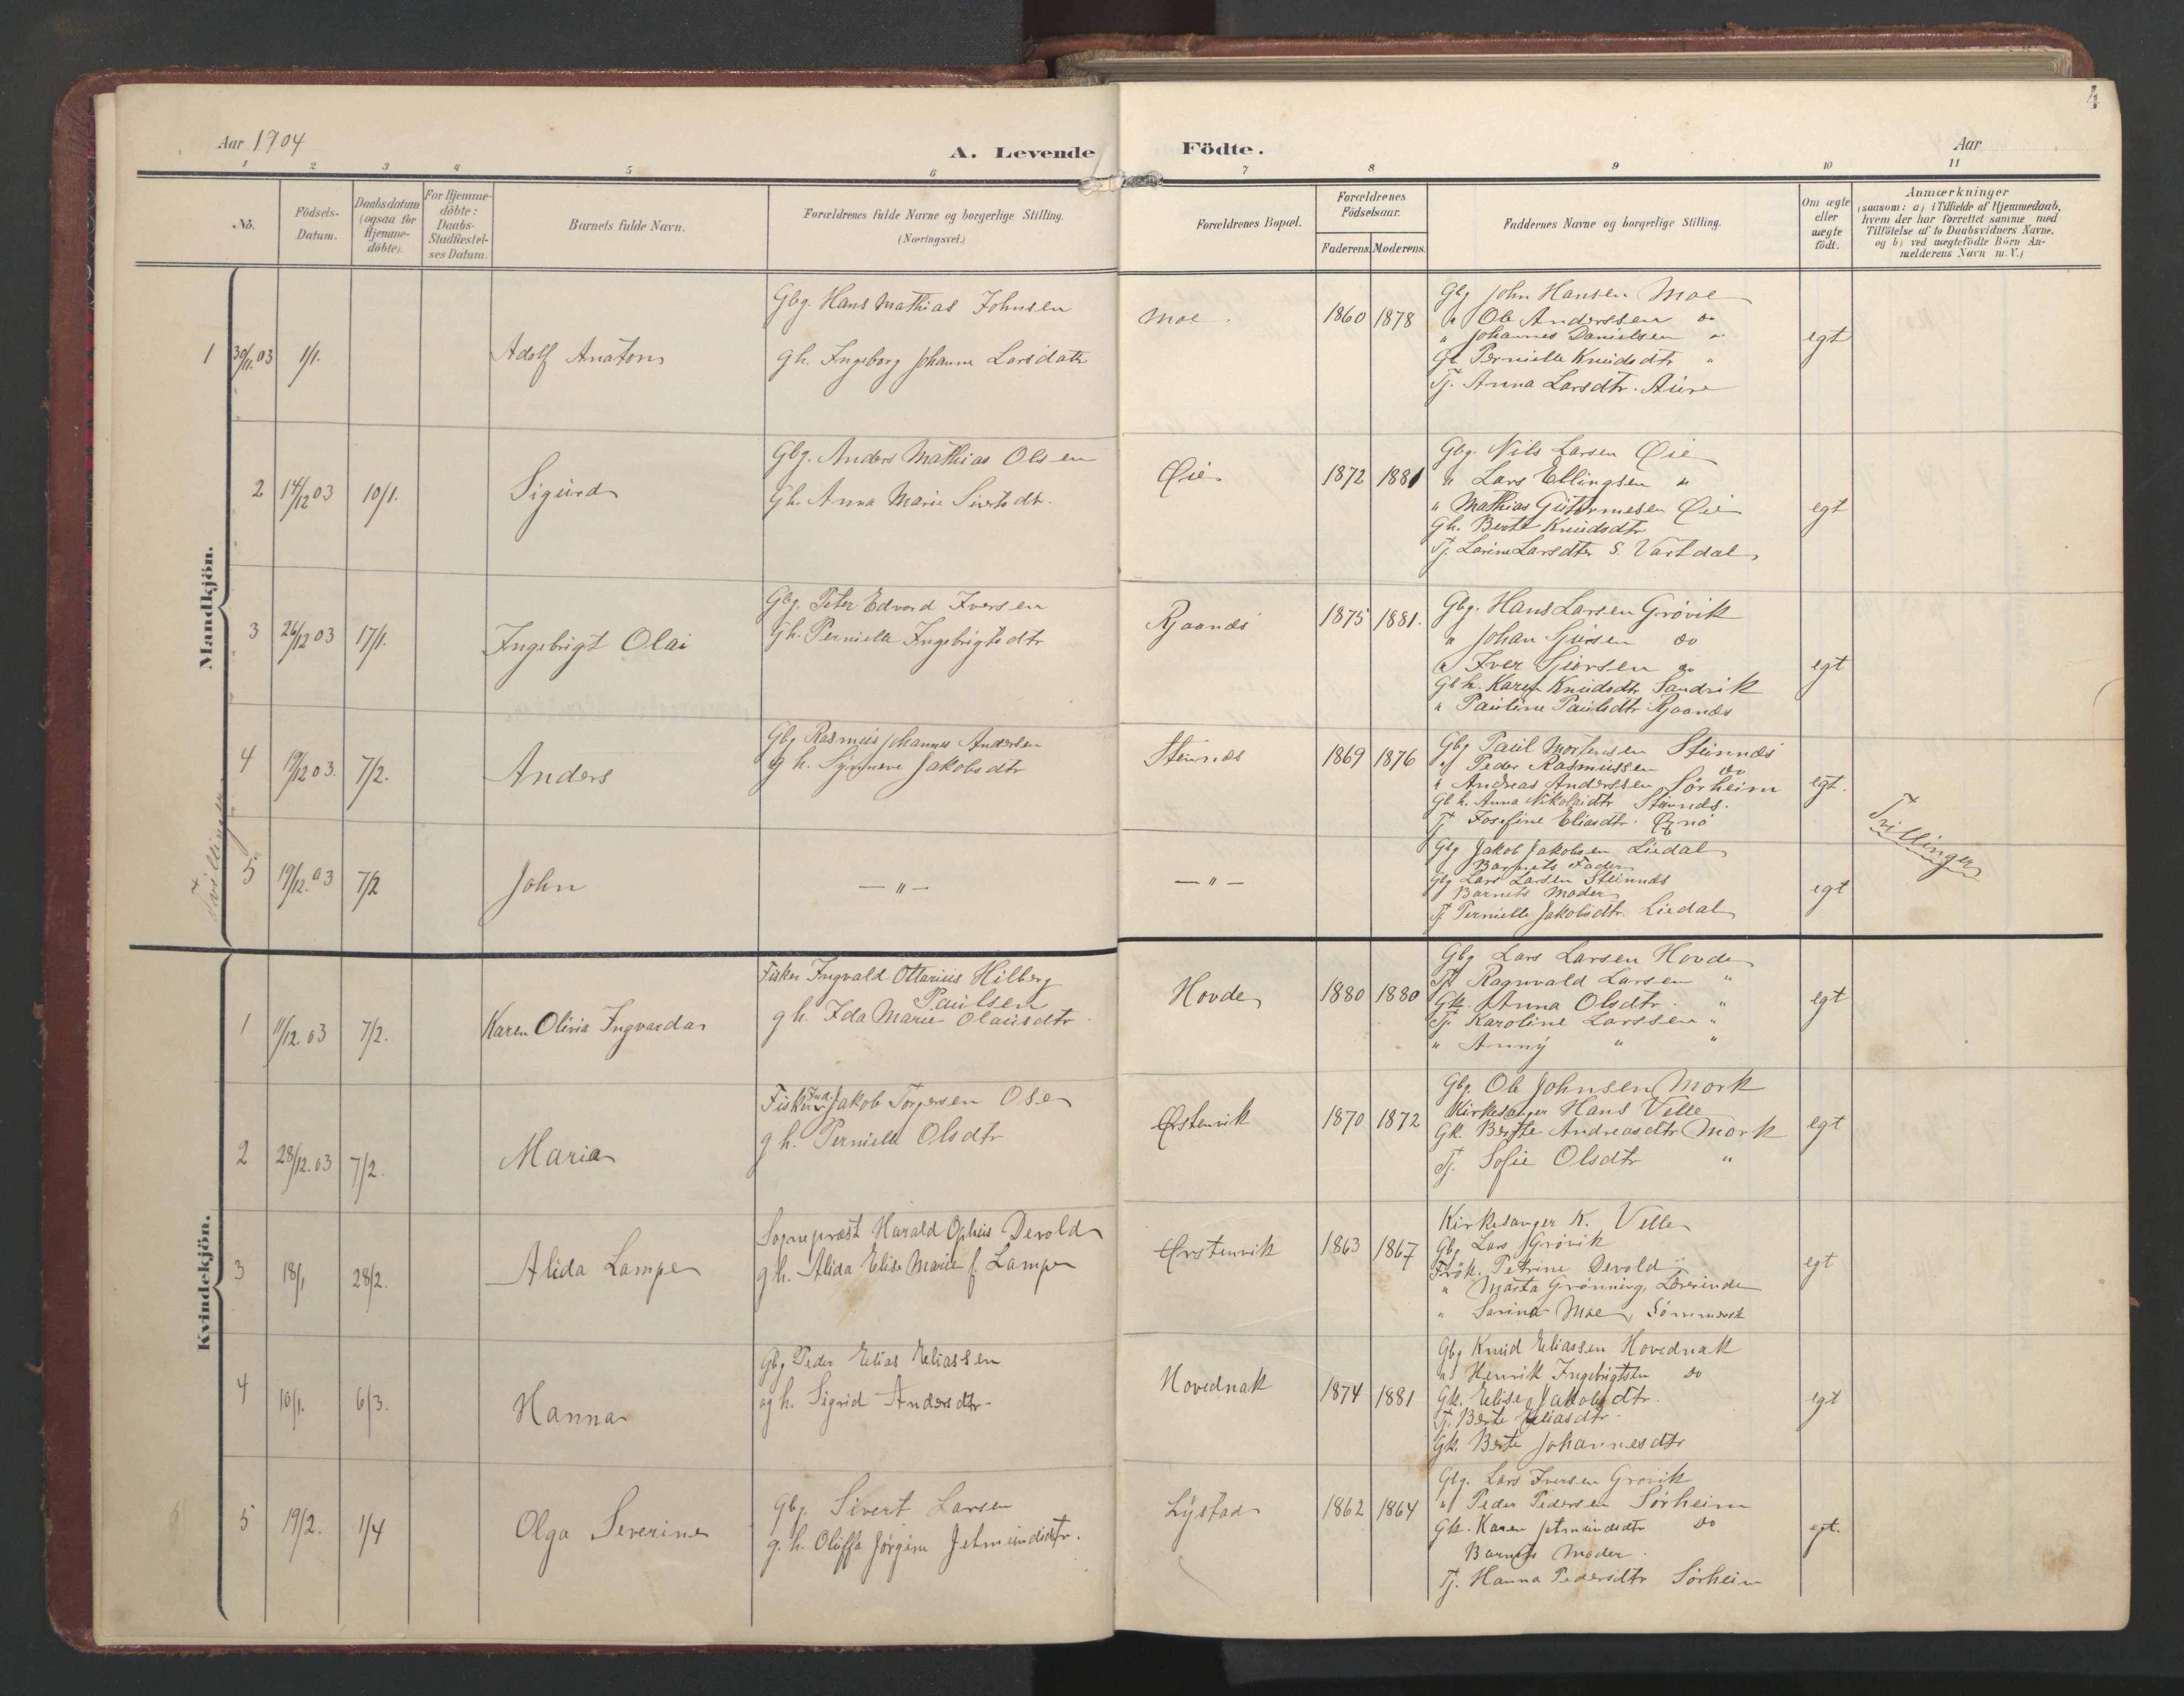 4
Aar 1904
A. Levende Födte.
Aar
1 2 3 4 5 6 7 8 9 10 11
No.
Födsels-Datum.
Daabsdatum (ogsaa for Hjemme-döbte).
For Hjemme-döbte: Daabs-Stadfæstel-ses Datum.
Barnets fulde Navn.
Forældrenes fulde Navne og borgerlige Stilling.
(Næringsvei.)
Forældrenes Bopæl.
Forældrenes Födselsaar.
Faderens. Moderens.
Faddernes Navne og borgerlige Stilling.
Om ægte eller uægte födt.
Anmærkninger
(saasom: a) i Tilfælde af Hjemmedaab,
hvem der har forrettet samme med
Tilföielse af to Daabsvidners Navne,
og b) ved uægtefödte Börn An-
melderens Navn m. V.)
Mandkjön.
1 30/11.03 1/1. Adolf Anaton
Gbg. Hans Mathias Johnsen
gh. Ingeborg Johanne Larsdatr
Moe 1860 1878
Gbg John Hansen Moe
" Ole Anderssen do
" Johannes Danielsen "
Gk Pernielle Knudsdtr "
Tj. Anna Larsdtr. Aure
egt
2 14/12 03 10/1. Sigurd
Gbg. Anders Mathias Olsen
Gh. Anna Marie Sivertsdtr.
Øie 1872 1881
Gbg. Nils Larsen Øie
" Lars Ellingsen "
" Mathias Guttormesen Øie
Gh. Berte Knudsdtr
Tj. Larine Larsdtr S. Vartdal
egt
3 26/12 03 17/1. Ingebrigt Olai
Gbg. Peter Edvard Iversen
Gh. Pernielle Ingebrigtsdtr
Rjaanes 1875 1881.
Gbg. Hans Larsen Grøvik
" Johan Sjursen do
" Iver Sjursen do
Gbk. Karen Knudsdtr Sandvik
" Pauline Paulsdtr Rjaanes
egt
4 19/12 03. 7/2. Anders
Gbg Rasmus Johannes Andersen
gh. Synneve Jakobsdtr
Steinnes 1869 1876
Gbg Paul Mortensen Steinnes
" Peder Rasmussen do
" Andreas Anderssen Sørheim
Gbk. Anna Nikolaidtr Steinnes.
Tj Josefine Eliasdtr.
egt.
Tvillinger
Tvillinger
5 19/12.03 7/2 John
— " —
— " —
Gbg Jakob Jakobsen Liedal
Barnets Fader
Gbg Lars Larsen Steinnes
Barnets Moder
Tj. Pernielle Jakobsdtr. Liedal
egt
Kvindekjön.
1 11/12.03 7/2. Karen Olivia Ingvarda
Fisker Ingvald Ottarius Hilberg
Paulsen
gh. Ida Marie Olausdtr.
Hovde 1880 1880
Gbg Lars Larsen Hovde
Tj. Ragnvald Larsen "
Gk. Anna Olsdtr. "
Tj. Karoline Larssen "
" Anny " "
egt
2 28/12.03 7/2. Maria
Fisker Jakob Torgersen Ose
gh. Pernielle Olsdtr
Ørstenvik 1870 1872
Gbg Ole Johnsen Mork
Kirkesanger Hans Velle
Gk. Berte Andreasdtr Mork
Tj. Sofie Olsdtr "
egt
3 18/1 28/2. Alida Lampe
Sogneprest Harald Ophus Devold
gh. Alida Elise Marie f. Lampe
Ørstenvik 1863 1867
Kirkesanger K. Velle
Gbg Lars Grøvik
Frøk. Petrine Devold
" Marta Grønning, Lærerinde
" Sarina Moe,
egt
4 10/1. 6/3. Hanna
Gbg Peder Elias Eliassen
og h. Sigrid Andersdtr.
Hovdenak 1874 1881
Gbg Knud Eliassen Hovdenak
" Henrik Ingebrigtsen do
Gk. Elise Jakobsdtr.
Tj. Berte Eliasdtr.
Gk. Berte Johannesdtr
egt
5 19/2. 1/4 Olga Severine
Gbg. Sivert Larsen
g. h. Oluffa Jørgine Jetmundsdtr.
Lystad 1862 1864
Gbg. Lars Iversen Grøvik
" Peder Pedersen Sørheim
Gk. Karen Jetmundsdtr do
Barnets Moder.
Tj. Hanna Pedersdtr Sørheim
egt.